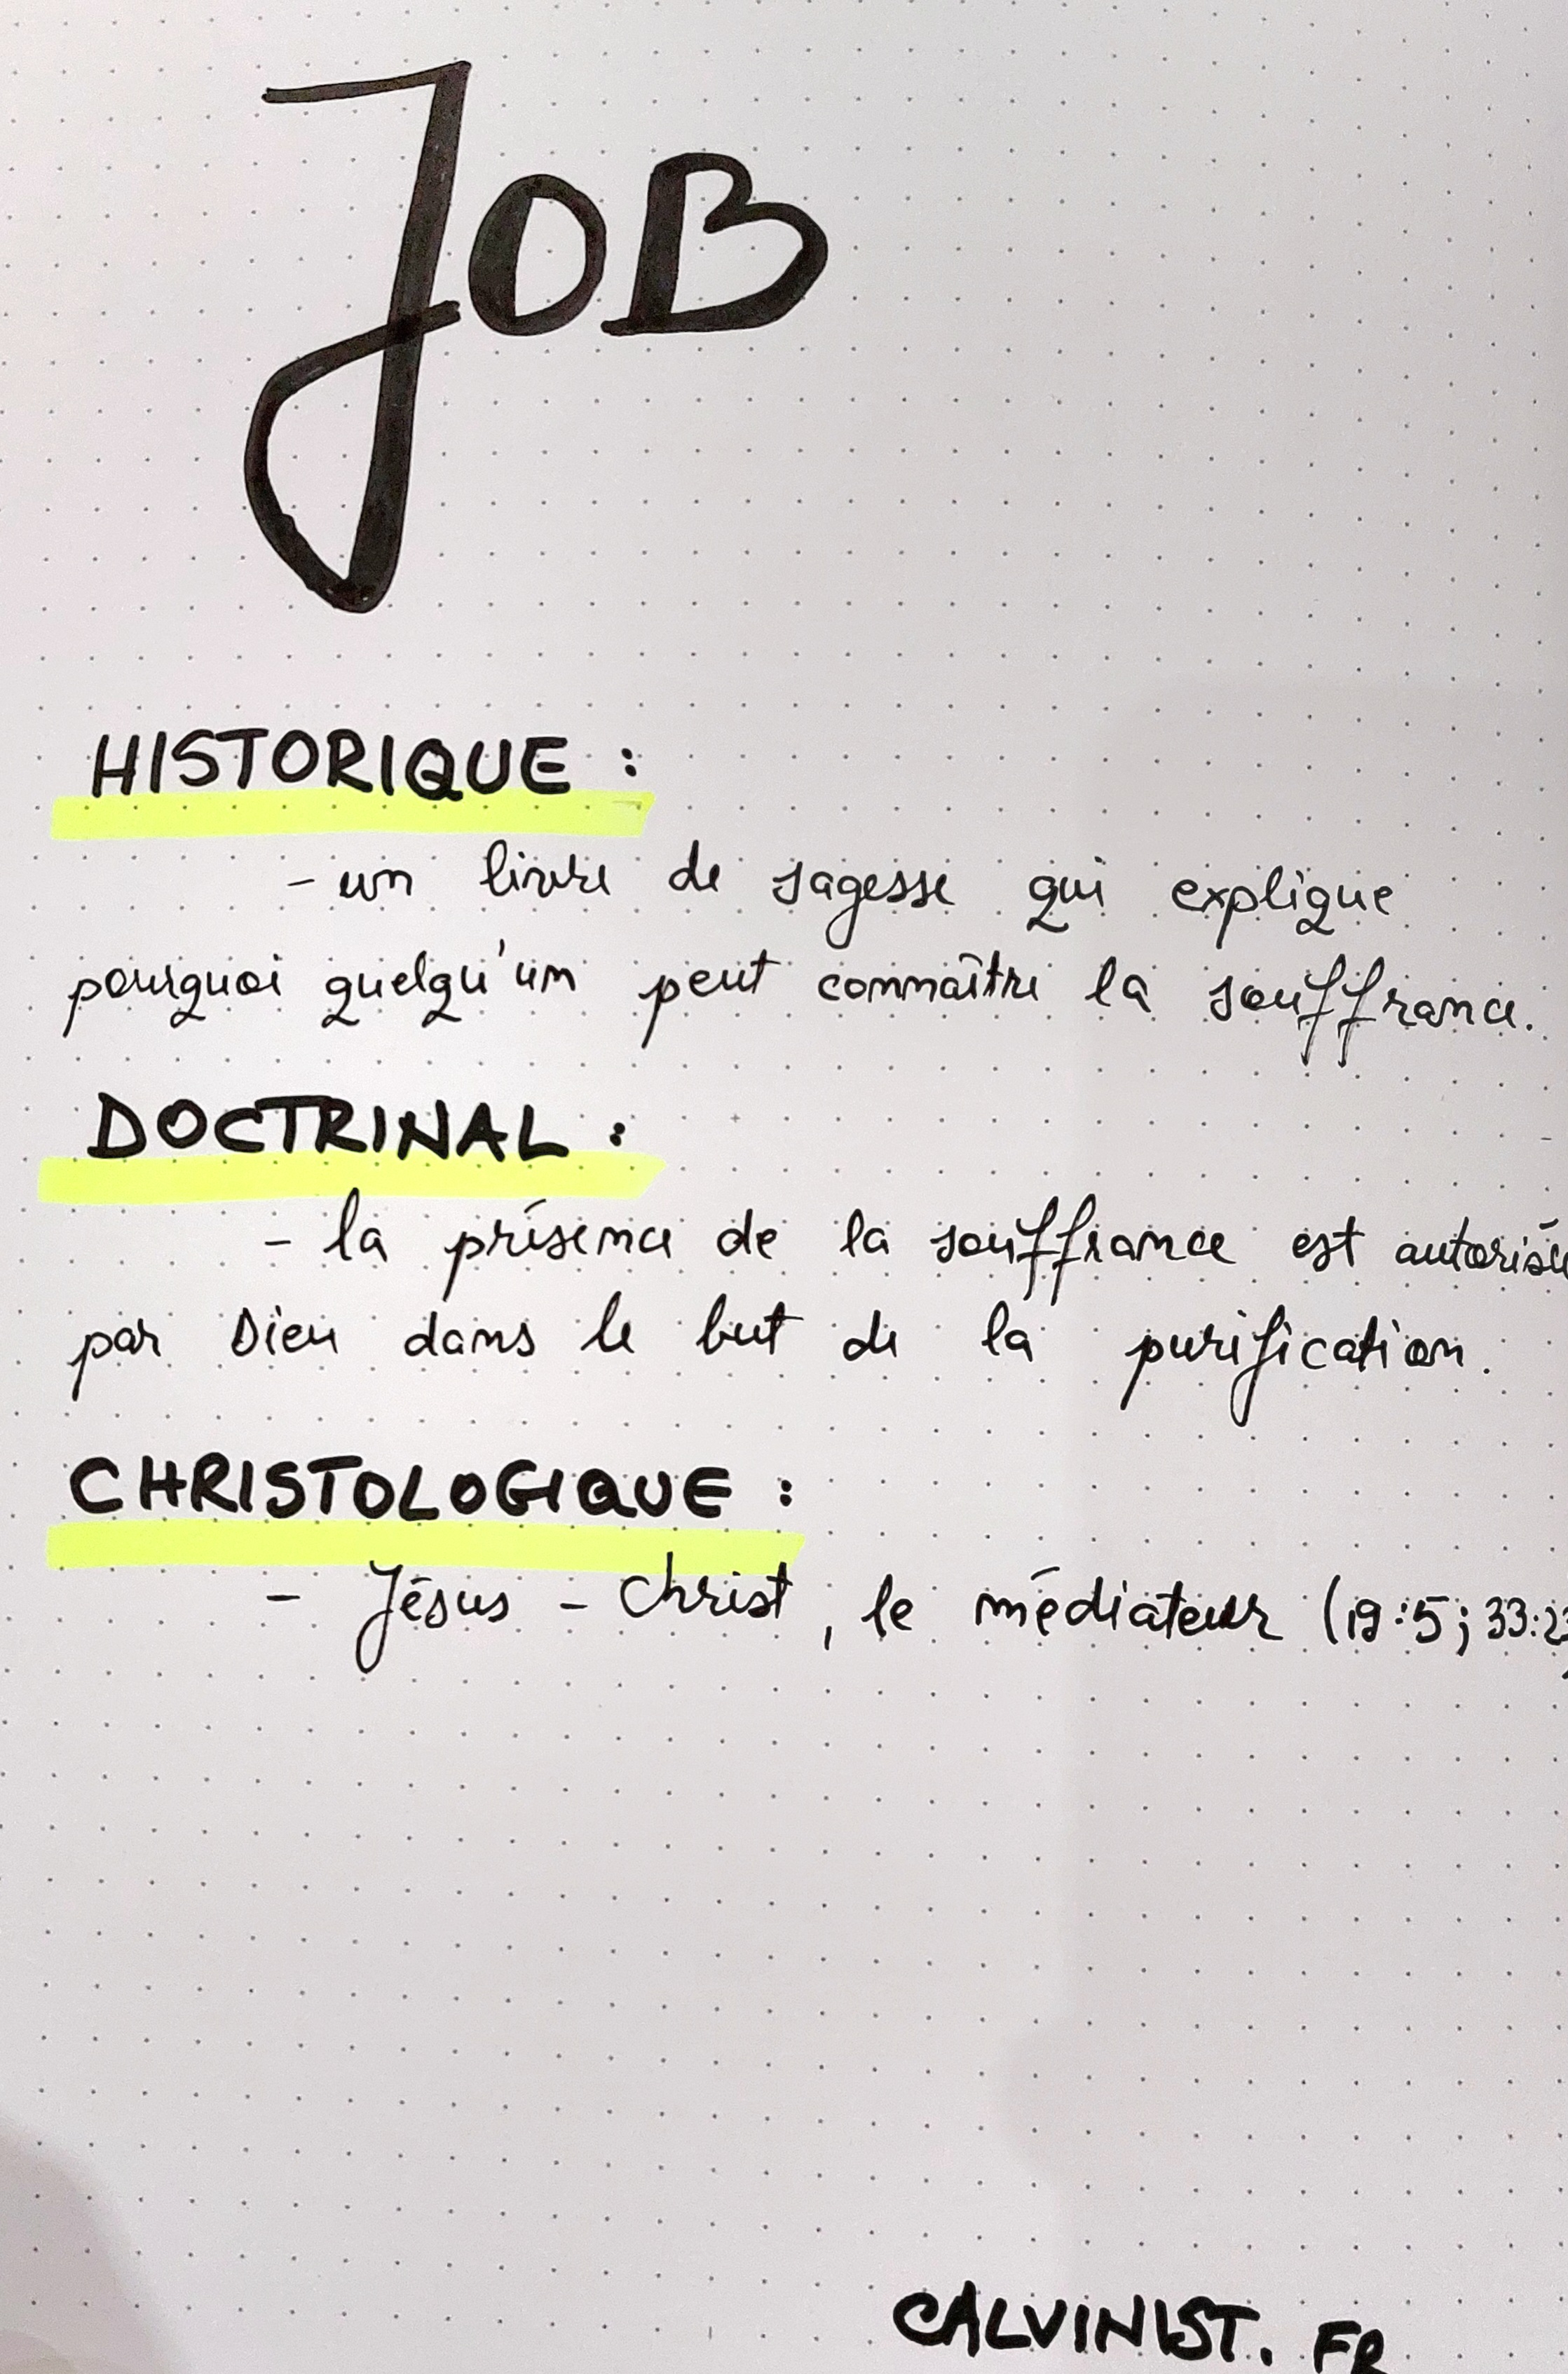 JOB
HISTORIQUE :
- un livre de sagesse qui explique
pourquoi quelqu'un peut connaître la souffrance.
DOCTRINAL :
- la présence de la souffrance est autorisée
par Dieu dans le but de la purification.
CHRISTOLOGIQUE :
- Jésus - Christ, le médiateur (19:5; 33:23
CALVINIST. FR